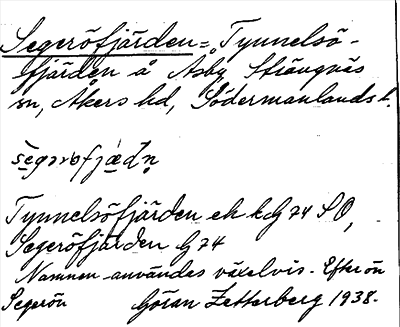 Segeröfjärden = Tynnelsö-
fjärden å Åsby Strängnäs
sn, Åkers hd, Södermanlands l.
Tynnelsöfjärden ek kG 74 SO,
Segeröfjärden G 74
Namnen användas växelvis. Efter ön
Segerön Göran Zetterberg 1938.